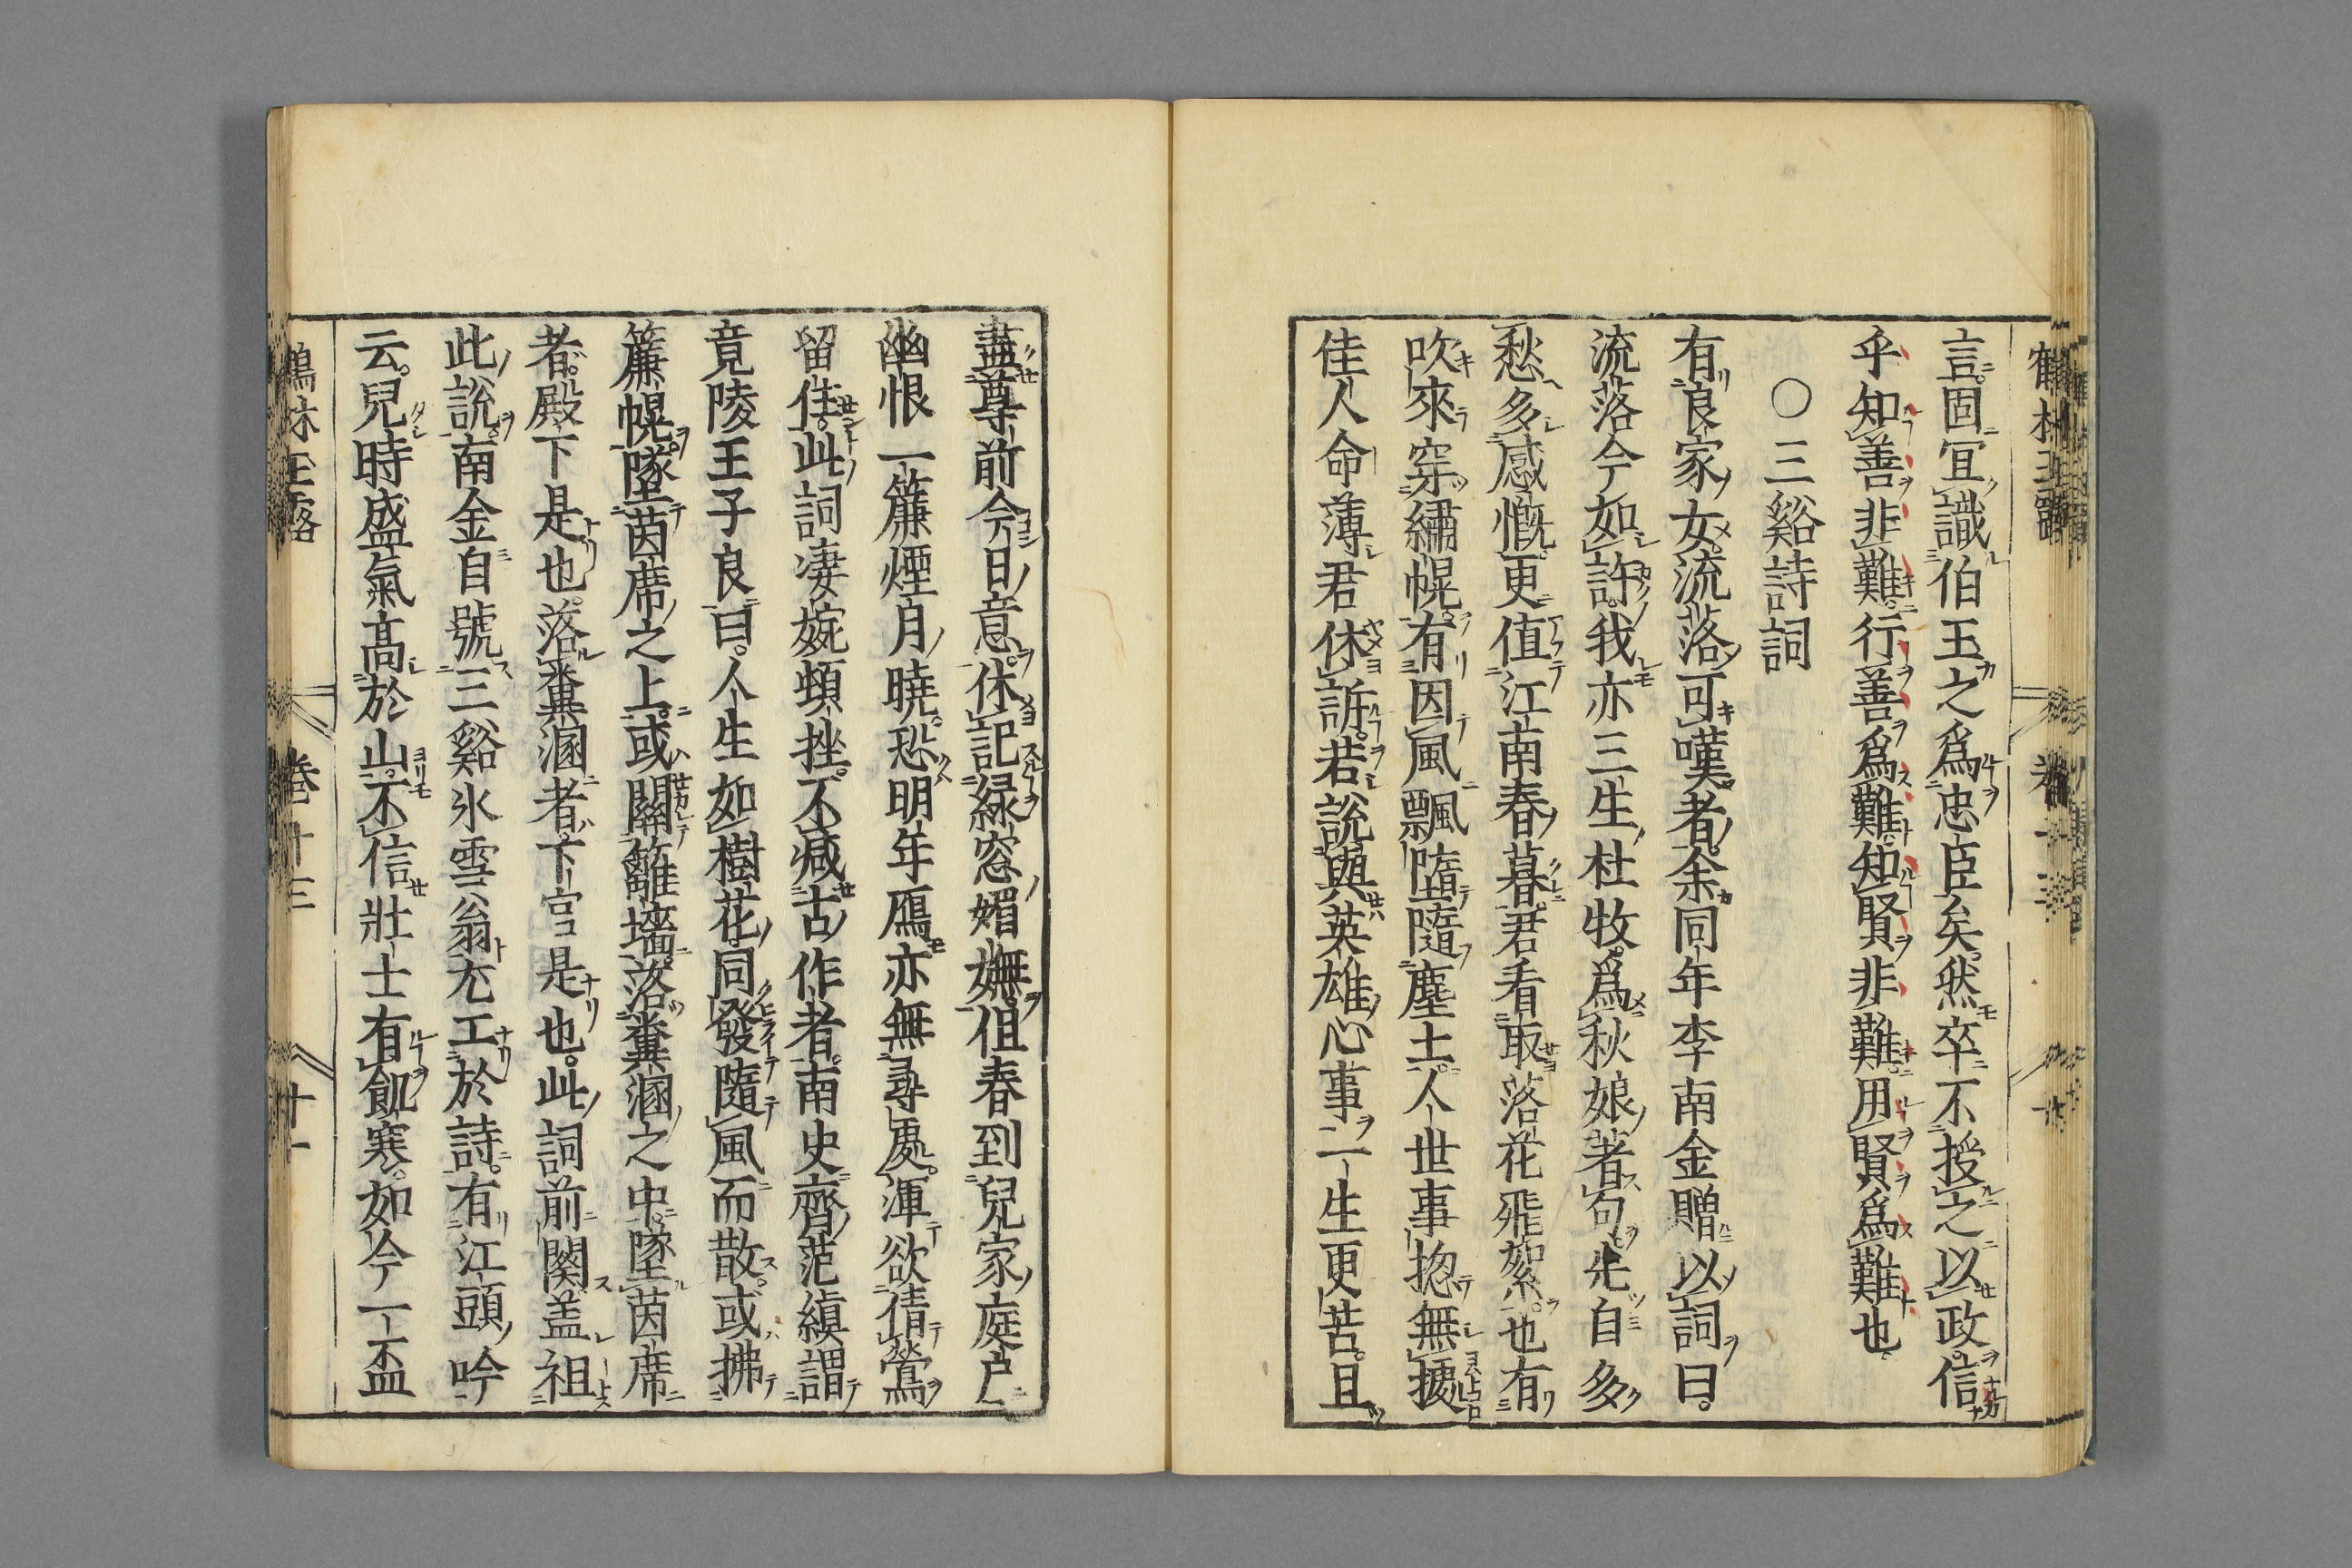 言固冝識伯玉之爲忠臣矣然卒不授之以政信
乎知善非難行善爲難知賢非難用賢爲難也
〇三谿詩詞
有良家女流落可嘆者余同年李南金贈以詞曰
流落今如許我亦三生杜牧爲秋娘著句先自多
愁多感慨更值江南春暮君看取落花飛絮也有
吹來穿繡幌有因風飄墮隨塵土人世事揔無㨿
佳人命薄君休訴若說與英雄心事一生更苦且
盡尊前今日意休記綠窓媚嫵但春到兒家庭户
幽恨一簾煙月曉恐明年鴈亦無尋處渾欲倩鶯
留住此詞凄婉頓挫不减古作者南史齊范縝謂
竟陵王子良曰人生如樹花同發隨風而散或拂
簾幌墜茵席之上或關籬墻落糞溷之中墜茵席
者殿下是也落糞溷者下官是也此詞前闋盖祖
此說南金自號三谿氷雪翁尤工於詩有江頭吟
云兒時盛氣髙於山不信壯士有飢寒如今一盃
鶴林玉露　卷十三　十一